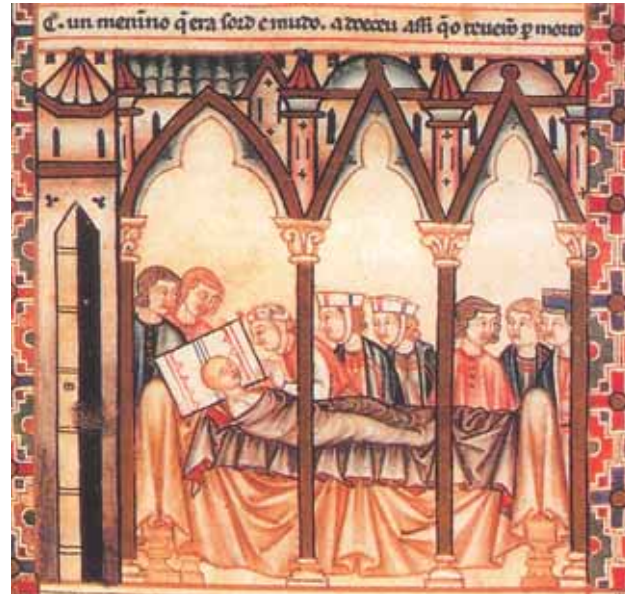 C. un menino q̃ era sord e mudo. adoeceu assi q̃ o teuerõ p̱ morto